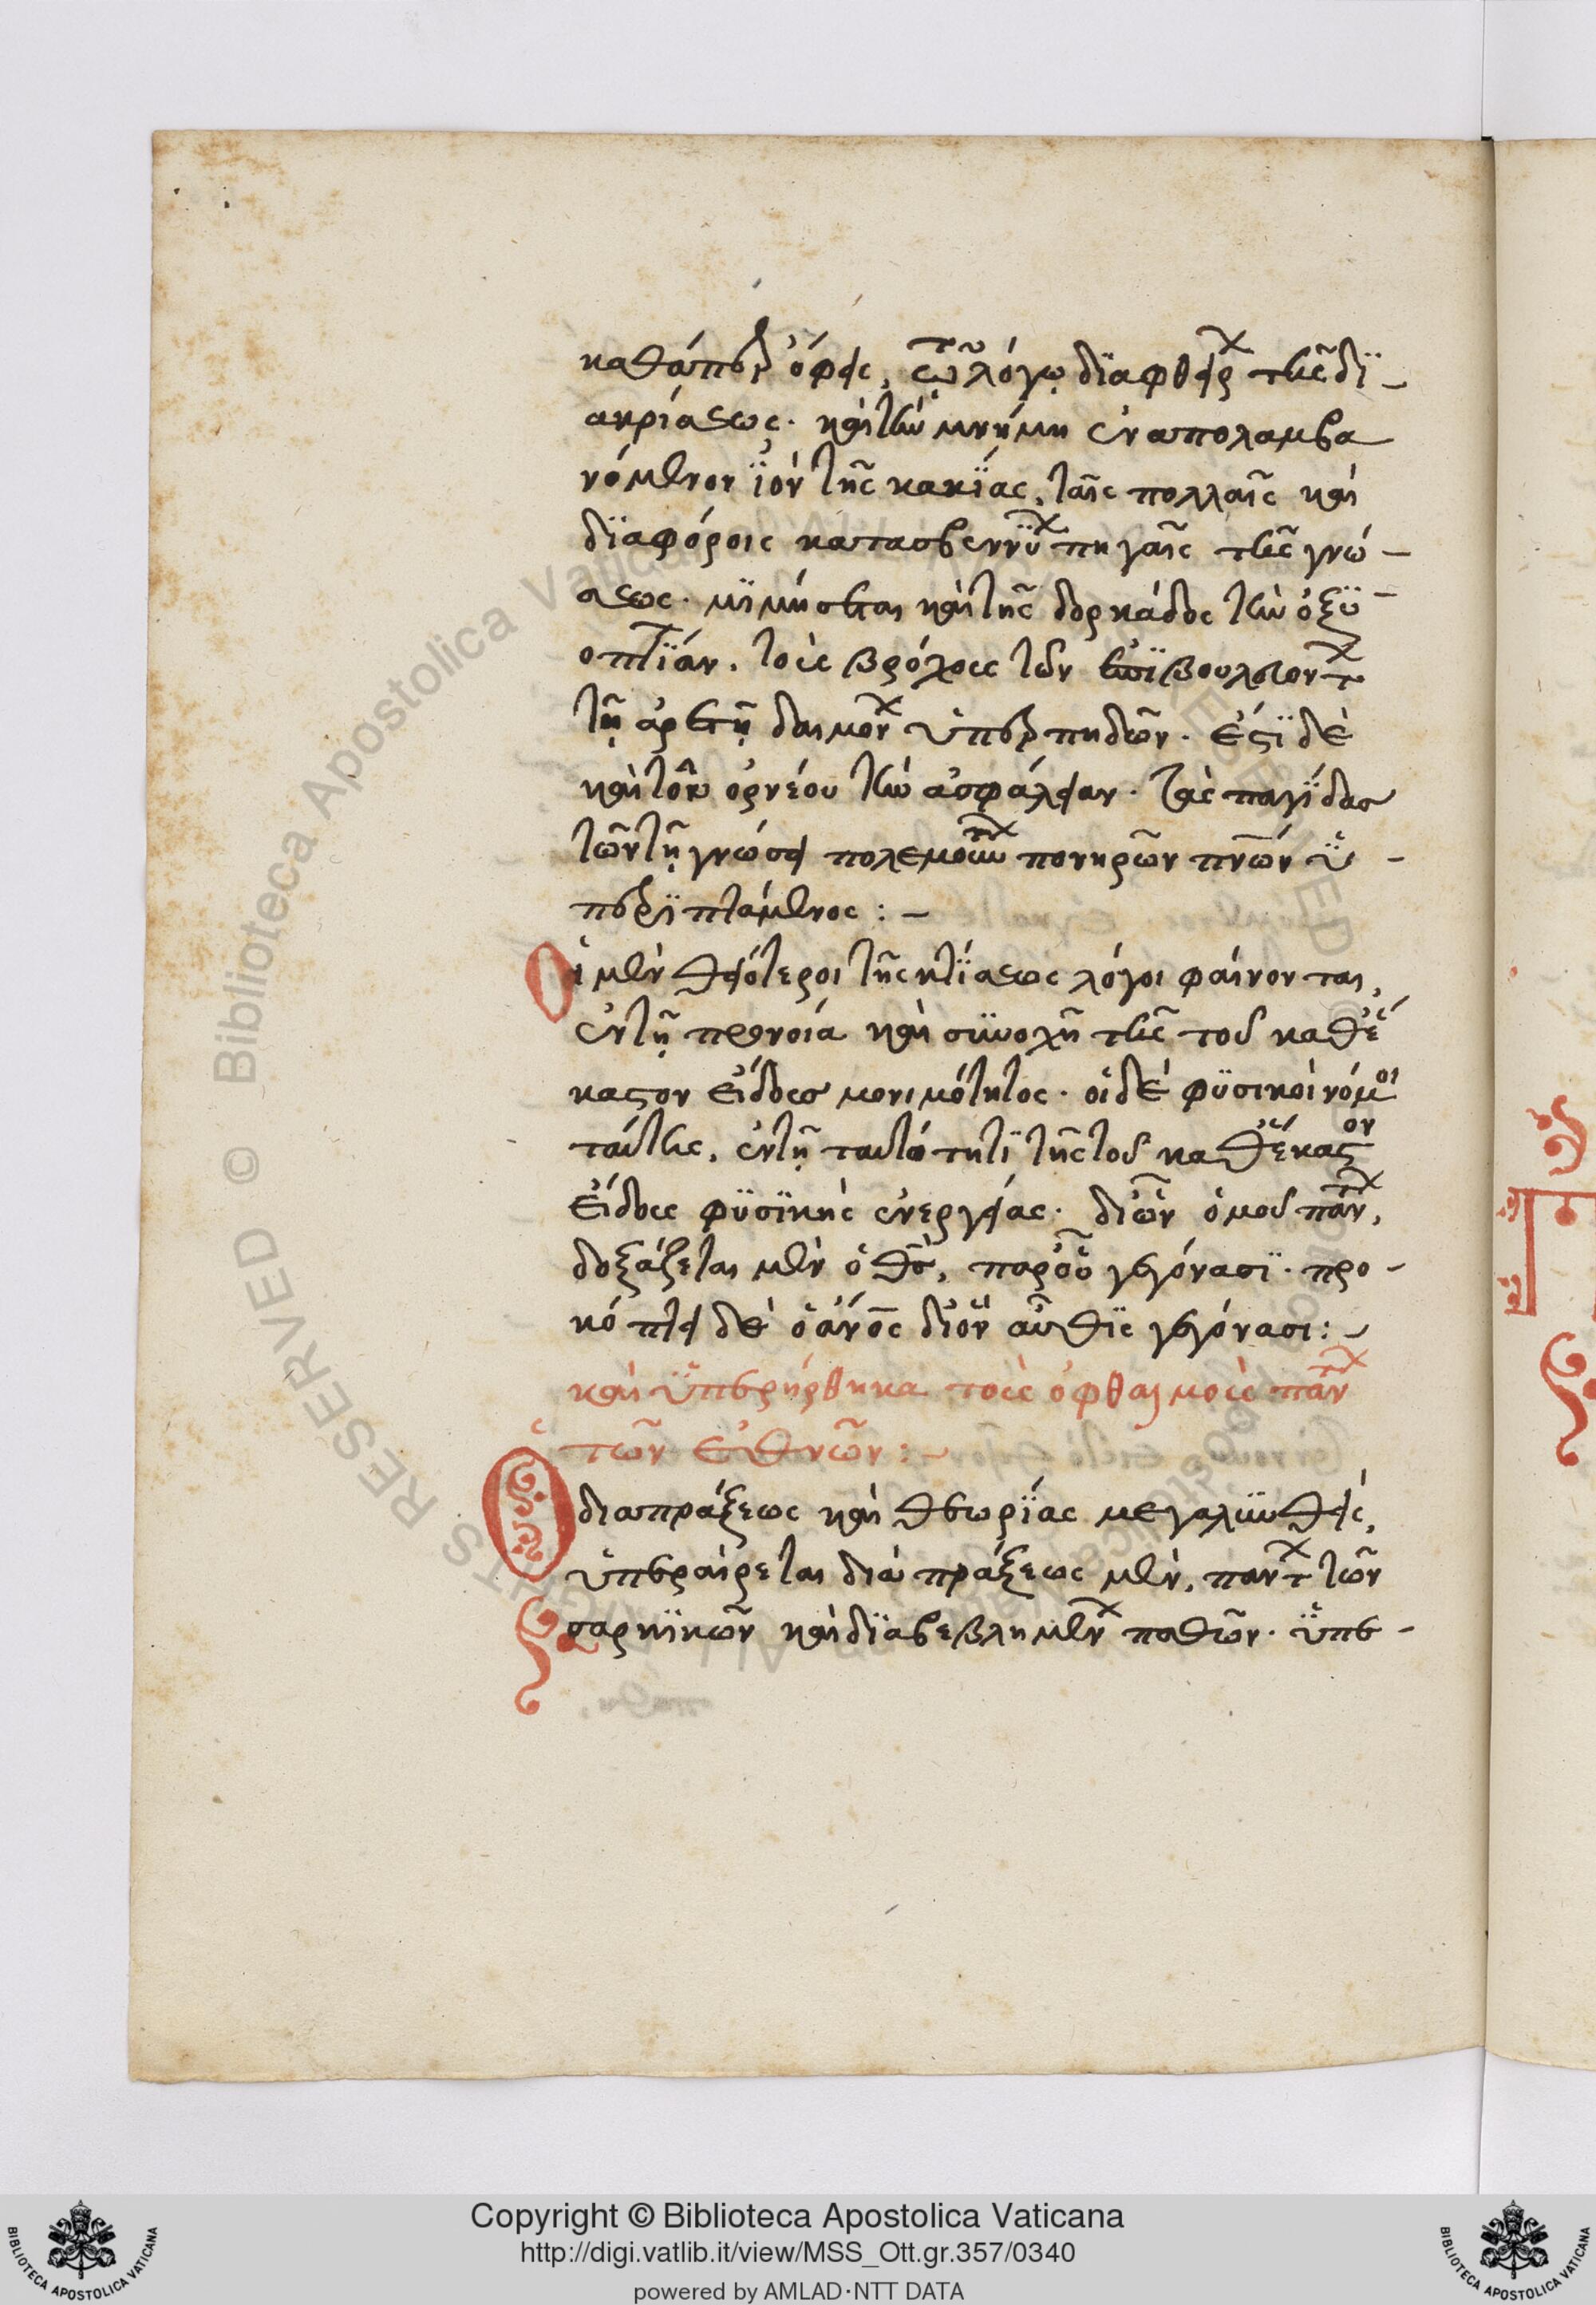 καθάπερ ὄφεις, τῷ λόγῳ διαφθείρων τῆς δϊ-
ακρίσεως· καὶ τῇ μνήμη ἐναπολαμβα
νόμενον ϊὸν τῆς κακϊας, ταῖς πολλαῖς καὶ
δϊαφόροις κατασβεννῢων πηγαῖς τῆς γνώ-
σεως· μϊμήσεται καὶ τῆς δορκάδος τὴν ὀξϋ-
οπτϊάν, τοὺς βρόχους τῶν ἐπϊβουλευόντων
τῇ ἀρετῇ δαιμόνων ὑπερπηδῶν. ἔστϊ δὲ
καὶ τοῦ ὀρνέου τὴν ἀσφάλειαν. τὰς παγϊδας
τῶν τῇ γνώσει πολεμούντων πονηρῶν πνων ὑ-
περϊπτάμενος :-
Οἱ μὲν θειότεροι τῆς κτϊσεως λόγοι φαίνονται,
ἐν τῇ προνοία καὶ συνοχῇ τῆς τοῦ καθ' ἕ
καστον εἴδους μονιμότητος· οἱ δὲ φϋσικοὶ νόμοι
ταύτης, ἐν τῇ ταυτότητϊ τῆς τοῦ καθ' ἕκαστον
εἴδους φϋσϊκῆς ἐνεργείας· δι' ὧν ὁμοῦ πάντων,
δοξάζεται μὲν ὁ θς, παρ' οὗ γεγόνασϊ· προ-
κόπτει δὲ ὁ ἄνος δι' ὃν αὖθϊς γεγόνασι :-
καὶ ὑπερήρθηκα τοῖς ὀφθαλμοῖς πάν
των ἐθνῶν :-
Ὁ διὰ πράξεως καὶ θεωρϊας μεγαλυνθεὶς,
ὑπεραίρεται διὰ πράξεως μὲν, πάντων τῶν
σαρκϊκῶν καὶ δϊαβεβλημένων παθῶν· ὑπε-
Copyright © Biblioteca Apostolica Vaticana
http://digi.vatlib.it/view/MSS_Ott.gr.357/0340
powered by AMLAD·NTT DATA
BIBLIOTECA APOSTOLICA VATICANA
BIBLIOTECA APOSTOLICA VATICANA